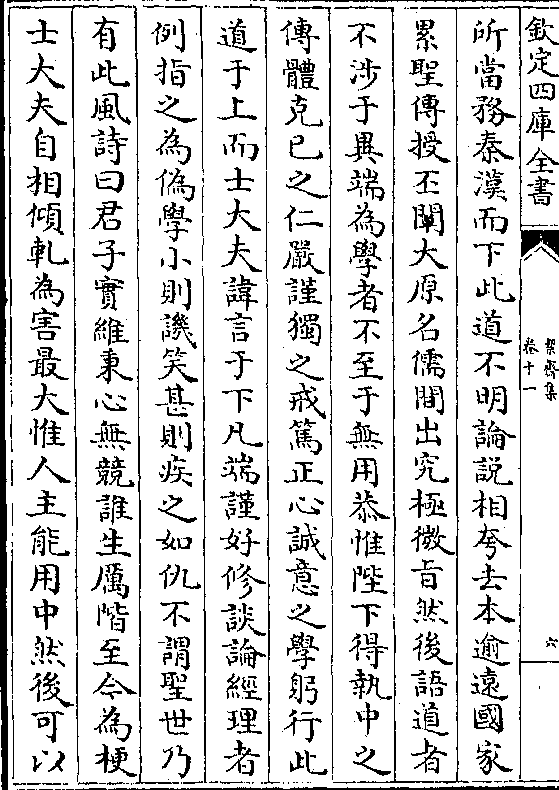 欽定四庫全書
絜齋集
卷十一
六
所當務秦漢而下此道不明論說相夸去本逾遠國家
累聖傳授丕闡大原名儒間出究極微旨然後語道者
不涉于異端為學者不至于無用恭惟陛下得執中之
傳體克已之仁嚴謹獨之戒篤正心誠意之學躬行此
道于上而士大夫諱言于下凡端謹好修談論經理者
例指之為偽學小則譏笑甚則疾之如仇不謂聖世乃
有此風詩曰君子實維秉心無競誰生厲階至今為梗
士大夫自相傾軋為害最大惟人主能用中然後可以